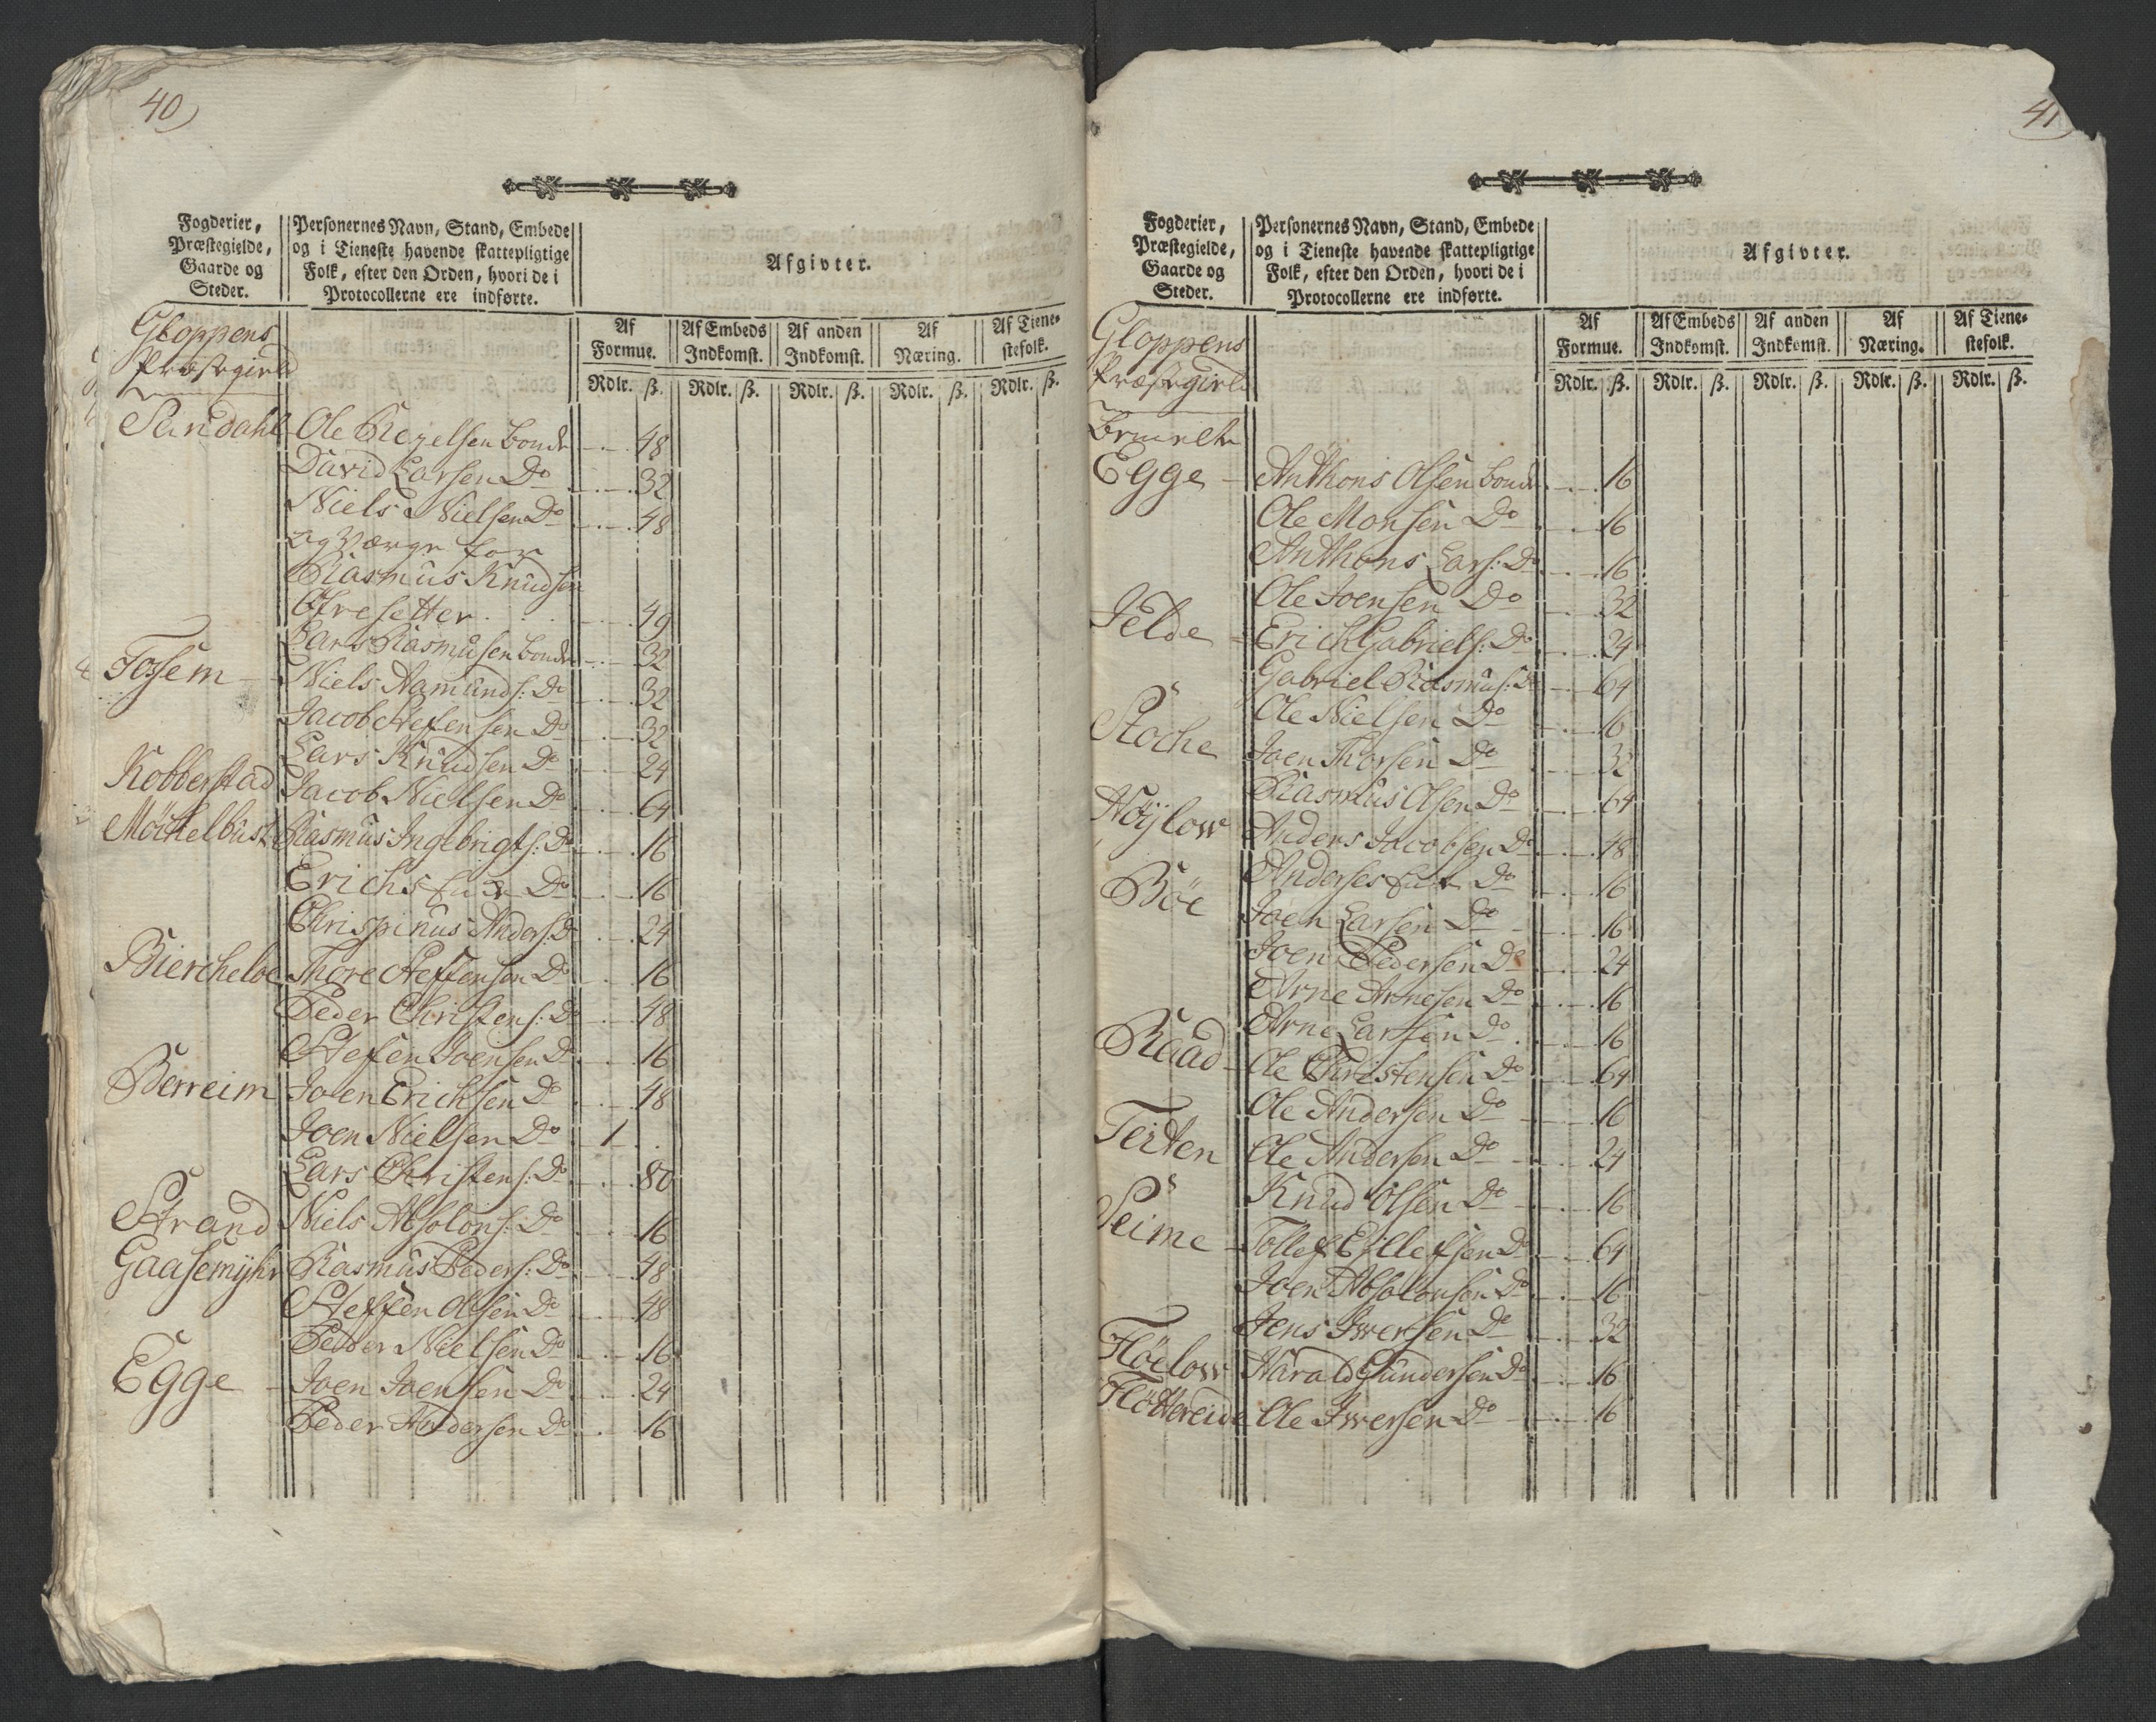 40
Fogderier,
Præstegielde,
Gaarde og
Steder.
Personernes Navn, Stand, Embede
og i Tieneste havende skattepligtige
Folk, efter den Orden, hvori de i
Protocollerne ere indførte.
Afgivter.
Af Formue. Af Embeds Indkomst. Af anden Indkomst. Af Næring. Af Tienestefolk.
Rdlr. ß. Rdlr. ß. Rdlr. ß. Rdlr. ß. Rdlr. ß.
Gloppens
Præstegield
Sandahl Ole Bonde 48
David Larsen Do 32
Niels Nielsen Do 48
og Værge for
Rasmus Knudsen
Øfresetter 49
Lars Rasmusen bonde 32
Fossem Niels Aamunds: Do 32
Jacob Steffensen Do 32
Lars Knudsen Do 24
Kobberstad Jacob Nielsen Do 64
Möchelbust Rasmus Ingebrigts: Do 16
Erich Do 16
Chrispinus Anders: Do 24
Biercheloe Thore Steffensen Do 16
Peder Christens: Do 48
Steffen Joensen Do 16
Berreim Joen Erichsen Do 48
Joen Nielsen Do 1
Lars Christens: Do 80
Strand Niels Absolons: Do 16
Gaasemyhr Rasmus Peders: Do 48
Steffen Olsen Do 48
Peder Nielsen Do 16
Egge Joen Joensen Do 24
Peder Andersen Do 16
41
Fogderier,
Præstegielde,
Gaarde og
Steder.
Personernes Navn, Stand, Embede
og i Tieneste havende skattepligtige
Folk, efter den Orden, hvori de i
Protocollerne ere indførte.
Afgivter.
Af Formue. Af Embeds Indkomst. Af anden Indkomst. Af Næring. Af Tienestefolk.
Rdlr. ß. Rdlr. ß. Rdlr. ß. Rdlr. ß. Rdlr. ß.
Gloppens
Præstegield
Bemelte
Egge Anthons Olsen bonde 16
Ole Monsen Do 16
Anthons Lars: Do 16
Ole Joensen Do 32
Jelde Erich Gabriels: Do 24
Gabriel Rasmus: Do 64
Ole Nielsen Do 16
Stoche Joen Thorsen Do 32
Rasmus Olsen Do 64
Höylow Anders Jacobsen Do 48
Böe Anders Do 16
Joen Larsen Do 16
Joen Pedersen Do 24
Arne Arnesen Do 16
Arne Larsen Do 16
Raad Ole Christensen Do 64
Ole Andersen Do 16
Teiten Ole Andersen Do 24
Knud Olsen Do 16
Seime Tollef Ellefsen Do 64
Joen Absolonsen Do 16
Jens Iwersen Do 32
Flöelow Harald Gundersen Do 16
Flöttereide Ole Iwersen Do 16